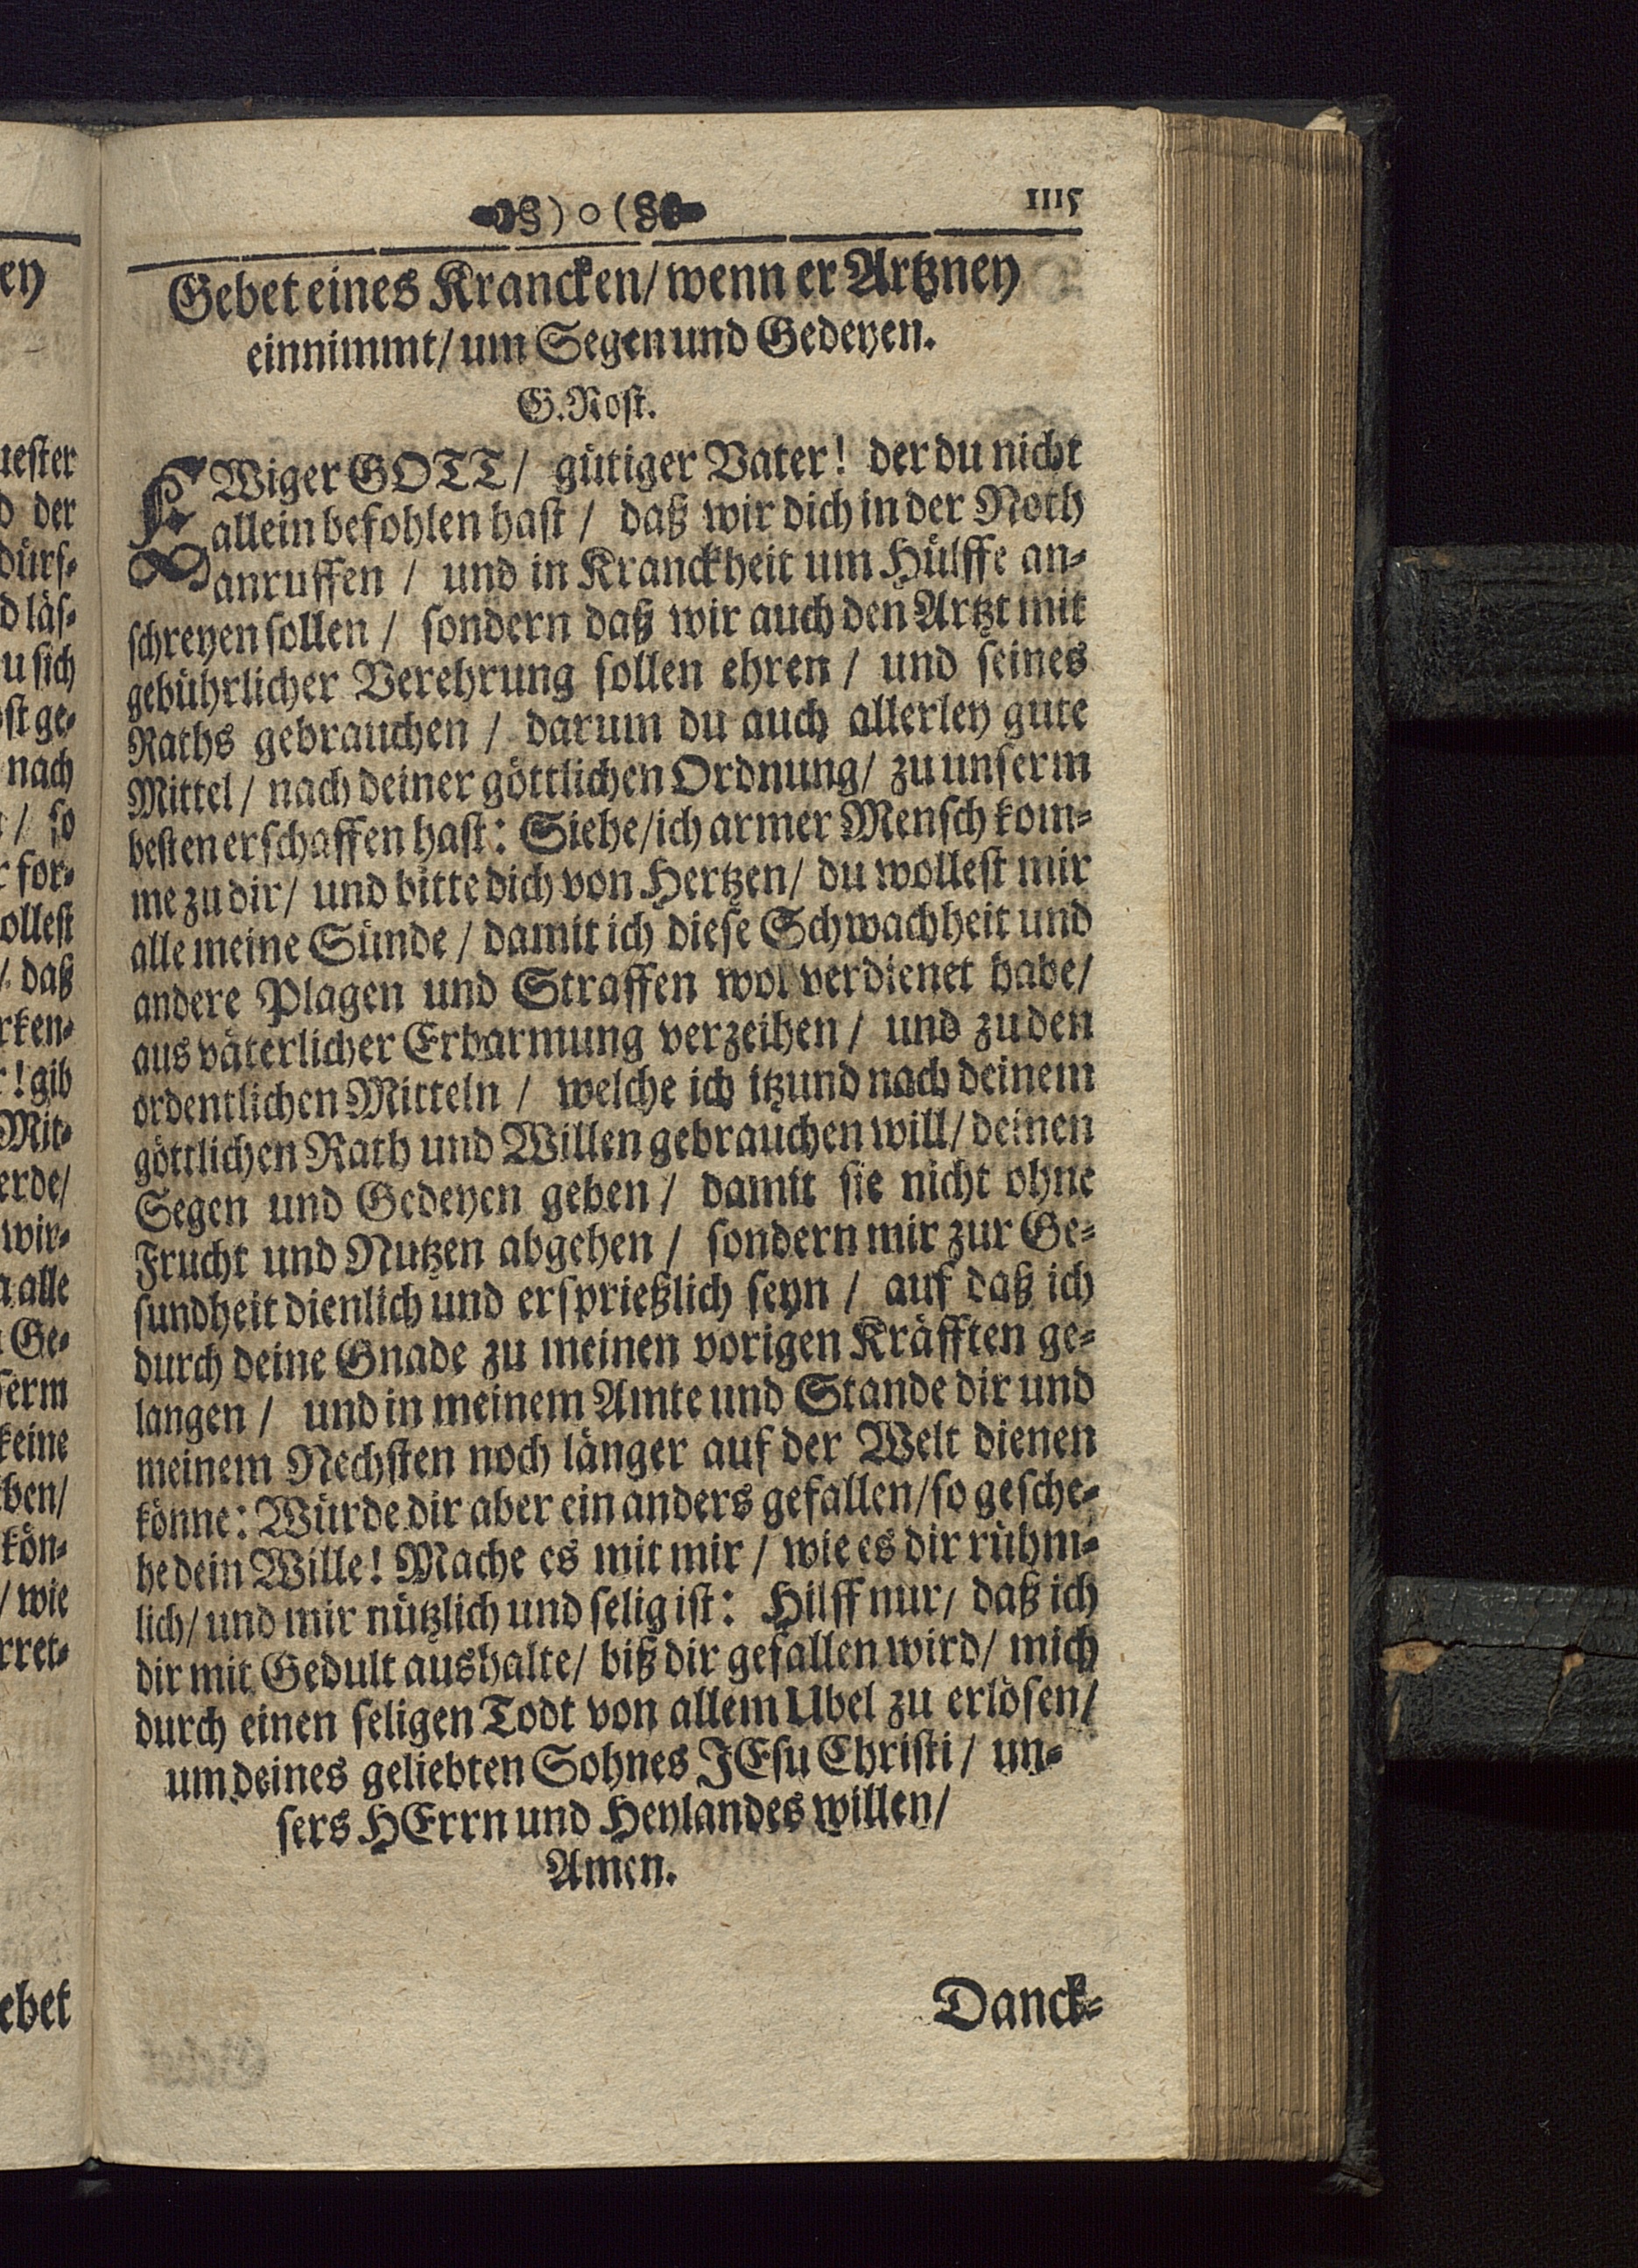 1115
Gebet eines Krancken/ wenn er Artzney
einnimmt/ um Segen und Gedeyen.
G. Rost.
EWiger GOTT/ gütiger Vater! der du nicht
allein befohlen hast/ daß wir dich in der Noth
anruffen/ und in Kranckheit um Hülffe an-
schreyen sollen/ sondern daß wir auch den Artzt mit
gebührlicher Verehrung sollen ehren/ und seines
Raths gebrauchen/ darum du auch allerley gute
Mittel/ nach deiner göttlichen Ordnung/ zu unserm
besten erschaffen hast: Siehe/ ich armer Mensch kom-
me zu dir/ und bitte dich von Hertzen/ du wollest mir
alle meine Sünde/ damit ich diese Schwachheit und
andere Plagen und Straffen wol verdienet habe/
aus väterlicher Erbarmung verzeihen/ und zu den
ordentlichen Mitteln/ welche ich itzund nach deinem
göttlichen Rath und Willen gebrauchen will/ deinen
Segen und Gedeyen geben/ damit sie nicht ohne
Frucht und Nutzen abgehen/ sondern mir zur Ge-
sundheit dienlich und ersprießlich seyn/ auf daß ich
durch deine Gnade zu meinen vorigen Kräfften ge-
langen/ und in meinem Amte und Stande dir und
meinem Nechsten noch länger auf der Welt dienen
könne: Würde dir aber ein anders gefallen/ so gesche-
he dein Wille! Mache es mit mir/ wie es dir rühm-
lich/ und mir nützlich und selig ist: Hilff nur/ daß ich
dir mit Gedult aushalte/ biß dir gefallen wird/ mich
durch einen seligen Todt von allem Ubel zu erlösen/
um deines geliebten Sohnes JEsu Christi/ un-
sers HErrn und Heylandes willen/
Amen.
Danck-